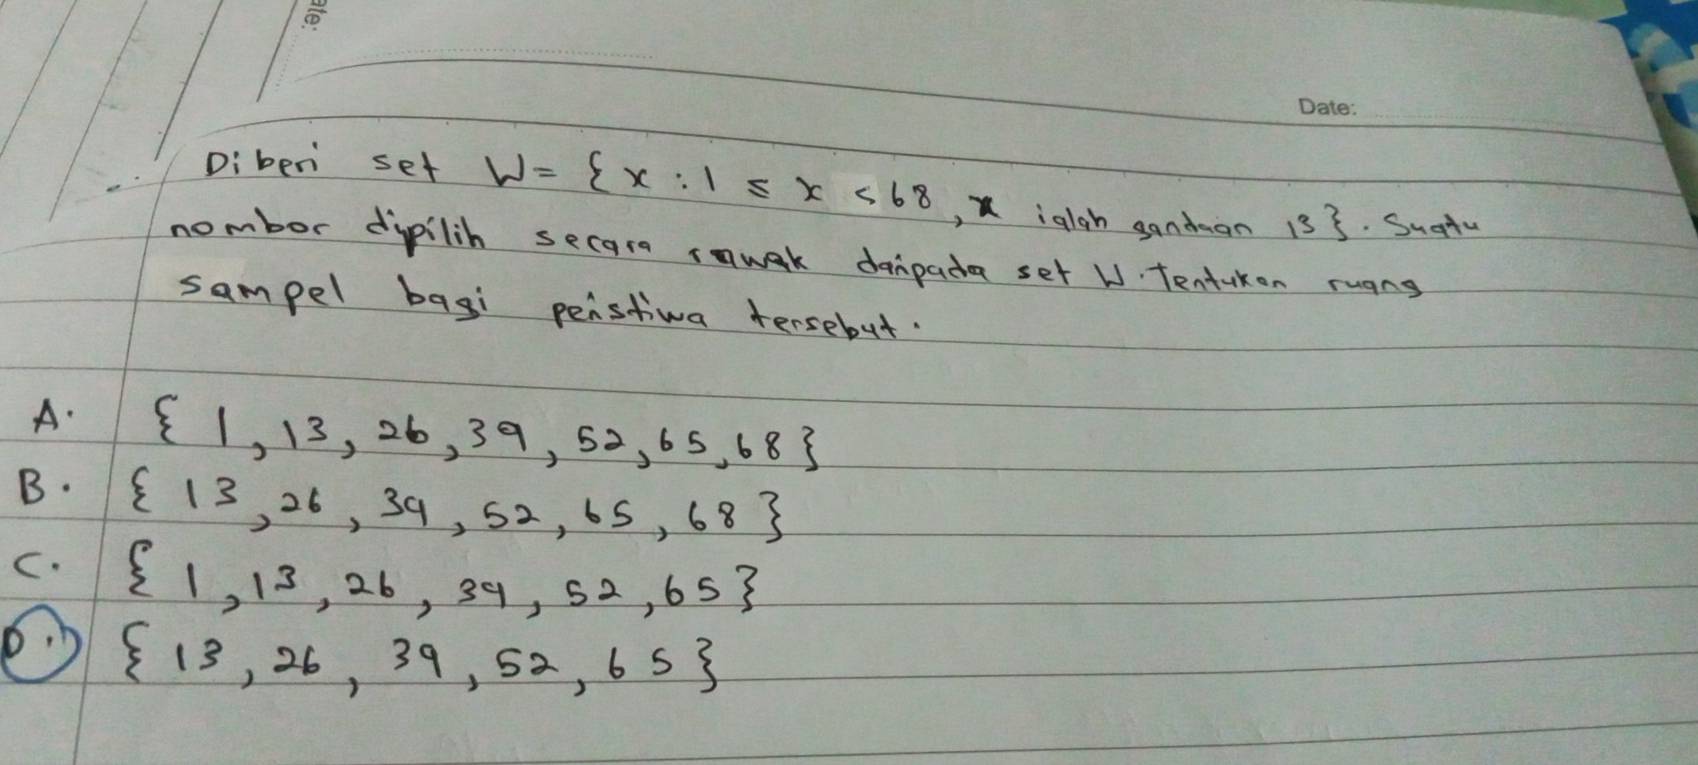 ate:
Date:
Diberi set W = { x : 1 ≤ x < 68, x ialah gandaan 13 }. Suatu
nombor dipilih secara rawak daripada set W. Tentukan ruang
sampel bagi peristiwa tersebut.
A. { 1, 13, 26, 39, 52, 65, 68 }
B. { 13, 26, 39, 52, 65, 68 }
C. { 1, 13, 26, 39, 52, 65 }
D. { 13, 26, 39, 52, 65 }